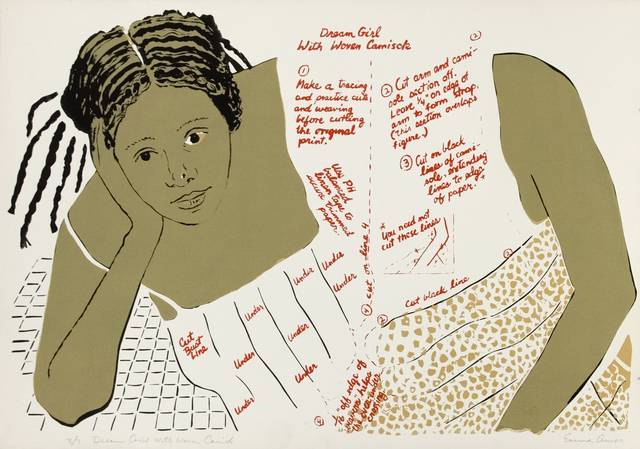 Dream Girl
With Woven Camisole
①
Make a tracing
and practice cuts
and weaving
before cutting
the original
print.
②
② Cut arm and cami-
sole section off.
Leave ¼" on edge of
arm to form strap.
(this section overlaps
figure.)
③ Cut on black
lines of cami-
sole extending
lines to edge
of paper. *
Use PH
balanced
linen tape to
secure trimmed
paper.
* You need not
cut these lines
④ cut on line 4
③
cut black line
②
Under
Under
Under
Under
Under
Under
Under
Under
Cut
Bust
Line
④
edge of
helps
5/7 Dream Girl With Woven Camisole
Emma Amos